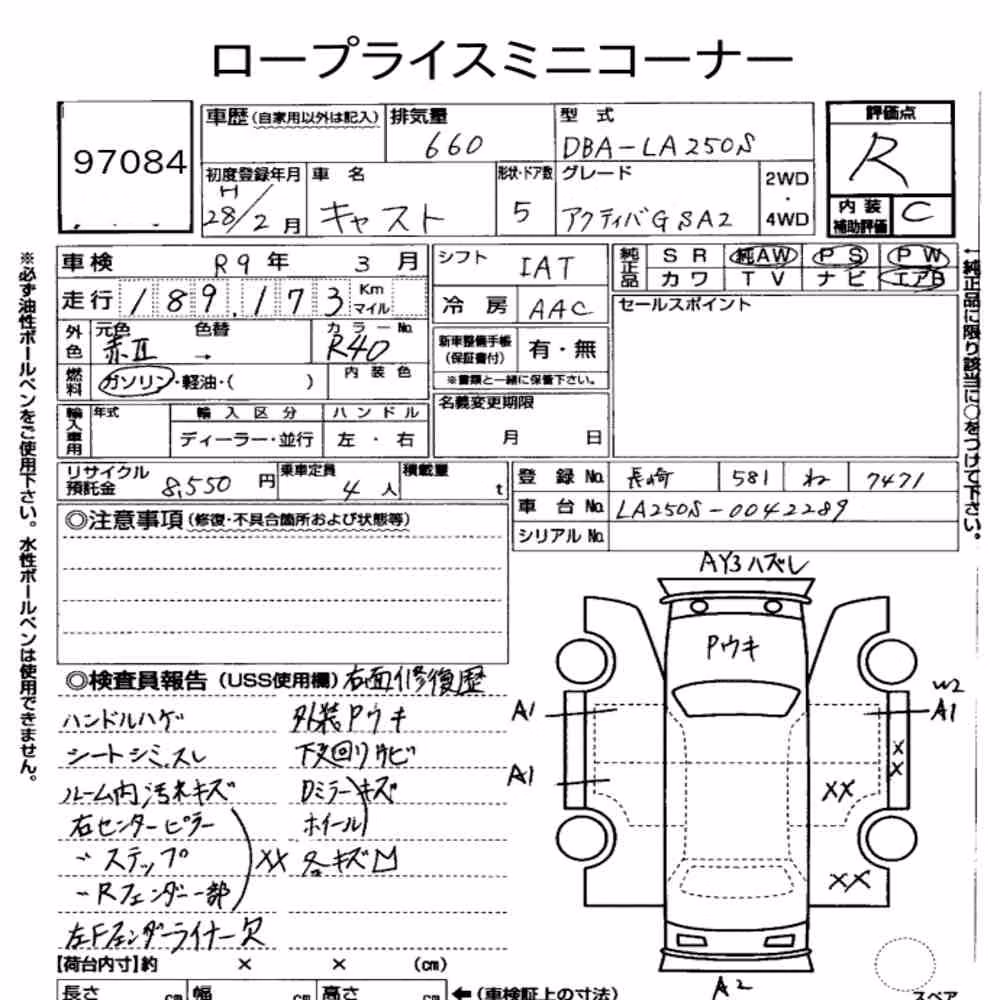 ロープライスミニコーナー
97084
車歴 (自家用以外は記入) 排気量 660
型式 DBA-LA250S
評価点 R
初度登録年月 H28/2月
車名 キャスト
形状・ドア数 5
グレード アクティバG SA2
2WD・4WD
内装補助評価 C
※必ず油性ボールペンをご使用下さい。水性ボールペンは使用できません。
車検 R9年 3月
シフト IAT
純正品 SR 純AW PS PW
カワ TV ナビ エアB
←純正品に限り該当に○をつけて下さい。
走行 189,173 Km マイル
冷房 AAC
セールスポイント
外色 元色 赤II 色替 → カラーNo. R40
新車整備手帳(保証書付) 有・無
※書類と一緒に保管下さい。
燃料 ガソリン・軽油・( ) 内装色
名義変更期限 月 日
輸入車用 年式 輸入区分 ハンドル
ディーラー・並行 左・右
リサイクル預託金 8,550円 乗車定員 4人 積載量 t
登録No. 長崎 581 ね 7471
車台No. LA250S-0042289
シリアルNo.
◎注意事項 (修復・不具合箇所および状態等)
AY3ハズレ
Pウキ
◎検査員報告 (USS使用欄) 右面修復歴
ハンドルハゲ 外装Pウキ
シートシミ、スレ 下廻りサビ
ルーム内汚れキズ Dミラー キズ
右センターピラー ホイール
〃 ステップ XX 各キズ凹
〃 Rフェンダー一部
左Fフェンダーライナー欠
A1
A1
W2
A1
XX
XX
XX
A2
【荷台内寸】約 × × (cm)
長さ cm 幅 cm 高さ cm ←(車検証上の寸法)
スペア